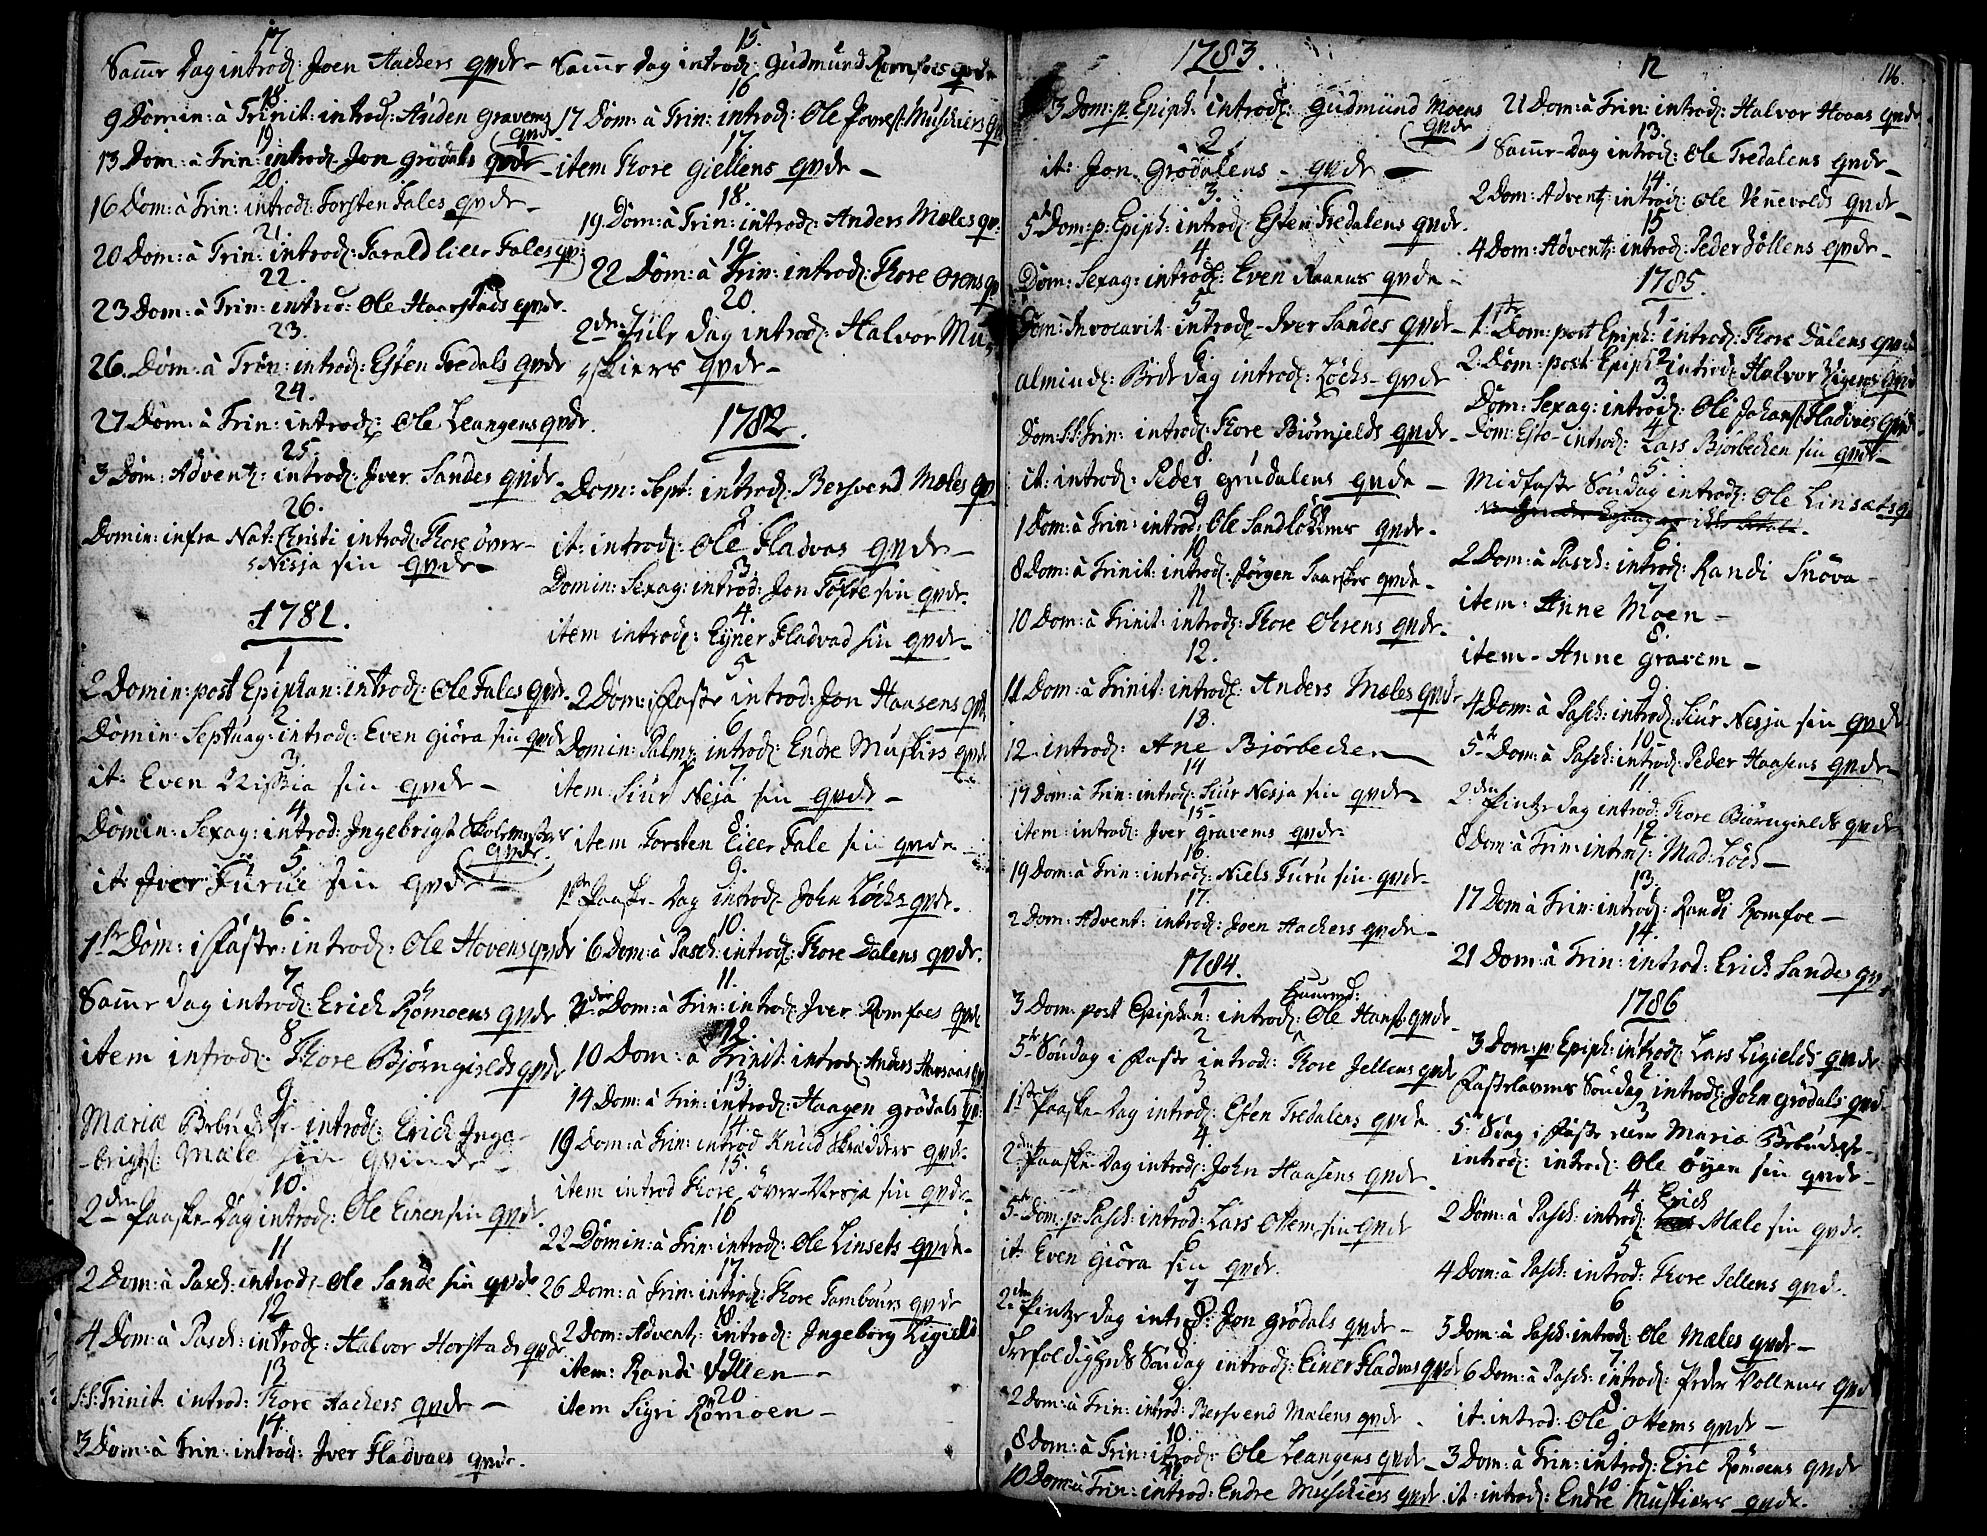 17
Samme Dag introd: Joen Aachers qvde –
18
9 Domin: à Trinit: introd: Auden Gravems qvde
19
13 Dom: à Trin: introd: Jon Grödals qvde –
20.
16 Dom: à Trin: introd: Torsten Fales qvde –
21.
20 Dom: à Trin: introd: Farald lille Fales qv:
22.
23 Dom: à Trin: introd: Ole Haarstads qvde.
23.
26. Dom: à Trin: introd: Esten Tredals qvde
24.
27 Dom: à Trin: introd: Ole Leangens qvde.
25.
3 Dom: Advent: introd: Iver Sandes qvde
26.
Domin: infra Nat: Christi introd: Thore över-
Nesja sin qvde –
1781.
1
2 Domin: post Epiphan: introd: Ole Fales qvde.
2
Domin: Septuag: introd: Even Giöra sin qvde
3
it: Even Nissia sin qvde –
4
Domin: Sexag: introd: Ingebrigt Skolemester
qvde.
5.
it: Iver Furue sin qvde –
6.
1ste Dom: i Faste: introd: Ole Hovens qvde
7
Samme Dag introd: Erich Römoens qvde
8
item introd: Thore Bjørngields qvde
9.
Mariæ Bebud: introd: Erich Inge-
brigts: Mæle sin qvinde –
10.
2den Paaske Dag introd: Ole Einen sin qvde.
11
2 Dom: à Pasch: introd: Ole Sande sin qvde
12
4 Dom: à Pasch: introd: Halvor Horstads qvde
13
S.S. Trinit: introd: Thore Aachers qvde –
14.
3 Dom: à Trin: introd: Iver Fladvaes qvde.
15.
Samme Dag introd: Gudmund Romfoes qvde
16
17 Dom: à Trin: introd: Ole Musckiers qv
17
item Thore Giellens qvde –
18.
19 Dom: à Trin: introd: Anders Mæles qv:
19
22 Dom: à Trin: introd: Thore Orens qv
20.
2den Jule Dag introd: Halvor Mu-
skiers qvde –
1782.
1
Dom: Sept: introd: Bersvend Mæles qv
2
it: introd: Ole Fladvas qvde –
3.
Domin: Sexag: introd: Jon Töfte sin qvde.
4.
item introd: Eyner Fladvad sin qvde –
5
2 Dom: i Faste introd: Jon Hansens qvd
6
Domin: Palm: introd: Endre Muskiers qvde
7.
item Siur Nesja sin qvde –
8.
item Torsten Lille Fale sin qvde –
9.
1ste Paaske Dag introd: John Löchs qvde.
10.
6 Dom: à Pasch: introd: Thore Dalens qvde.
11.
Dom: à Trin: introd: Iver Romfoes qvde
12.
10 Dom: à Trinit: introd: Anders qv
13.
14 Dom: à Trin: introd: Haagen Grödals qv:
14
19 Dom: à Trin: introd Knud Skrædders qvde.
15.
item introd Thore över-Nesja sin qvde.
16
22 Domin: à Trin: introd: Ole Linsets qvde.
17
26 Dom: à Trin: introd: Thore Tambours qvde
18
2 Dom: Advent: introd: Ingeborg Ligield
19
item: Randi Vollen –
20
item Sigri Römoen –
1783.
1
3 Dom: p. Epiph: introd: Gudmund Moens
qvde
2
it: Jon Grödalens – qvde –
3.
5te Dom: p: Epiph: introd: Esten Tredalens qvde.
4.
Dom: Sexag: introd: Even Raanes qvde –
5
Dom: Invocavit: introd – Iver Sandes qvde –
6
almind: Bede Dag introd: Löchs – qvde
7
Dom: S.S. Trin: introd: Thore Biörnjelds qvde –
8.
it: introd: Peder Grudalens qvde –
9
1 Dom: à Trin: introd: Ole Sandlökkens qvde –
10
8 Dom: à Trinit: introd: Jörgen qvde –
11
10 Dom: à Trinit: introd: Thore Ohrens qvde.
12.
11 Dom: à Trinit: introd: Anders Mæles qvde
13.
12 introd: Ane Bjørbechen
14
17 Dom: à Trin: introd: Siur Nesja sin qvde –
15.
item: introd: Iver Gravems qvde.
16.
19 Dom: à Trin: introd: Niels Furu sin qvde –
17.
2 Dom: Advent: introd: Joen Aachers qvde –
1784.
1
3 Dom: post Epiphan: introd: Ole Hans: qvde.
2
5te Söndag i Faste introd: Thore Jellens qvde
3
1ste Paaske Dag introd: Esten Tredalens qvde.
4.
2den Paaske Dag introd: John Haasens qvde.
5
5te Dom: p: Pasch: introd: Lars Ottem sin qvde
6
it: Even Giöra sin qvde.
7
2den Pintze Dag introd: Jon Grödals qvde –
8
Treefoldigheds Söndag introd: Einer Fladvas qvde
9
2 Dom: à Trin: introd: Bersvend Mælens qvde.
10.
8 Dom: à Trin: introd: Ole Leangens qvde –
11.
10 Dom: à Trin: introd: Endre Musckiers qvde.
116.
12
21 Dom: à Trin: introd: Halvor Hoaas qvde
13.
Samme Dag introd: Ole Tredalens qvde –
14.
2 Dom: Advent: introd: Ole Venevolds qvde –
15
4 Dom: Advent: introd: Peder Böllens qvde –
1785.
1
1ste Dom: post Epiph: introd: Thore Dalens qvde
2
2 Dom: post Epiph: introd: Halvor Vigens qvde
3.
Dom: Sexag: introd: Ole Johans: Fladvaes qvde
4
Dom: Esto – introd: Lars Bjørbechen sin qvde –
5.
Midfaste Söndag introd: Ole Linsæts qv
6.
2 Dom: à Pasch: introd: Randi Snöva –
7
item: Anne Moen –
8.
item – Anne Gravem –
9.
4 Dom: à Pasch: introd: Siur Nesja sin qvde
10
5te Dom: à Pasch: introd: Peder Haasens qvde –
11.
2den Pintze Dag introd: Thore Biörngields qvde
12.
8 Dom: à Trin: introd: Mad: Löch –
13.
17 Dom à Trin: introd: Randi Romfoe –
14.
21 Dom: à Trin: introd: Erich Sandes qv
1786
1
3 Dom: p: Epiph: introd: Lars Ligields qvde
2
Fastelavens Söndag introd: John Grödals qvd
3
5 i Faste Mariæ Bebudelse
introd: introd: Ole öyen sin qvde –
4
2 Dom: à Pasch: introd: Erich Mæle sin qvde.
5
4 Dom: à Pasch: introd: Thore Jellens qvde.
6
5 Dom: à Pasch: introd: Ole Mæles qvde –
7.
6 Dom: à Pasch: introd: Peder Vollens qvd
8.
it: introd: Ole Ottems qvde –
9.
3 Dom: à Trin: introd: Eric Römoens qvde
10
it: introd: Endre Muskiers qvde.